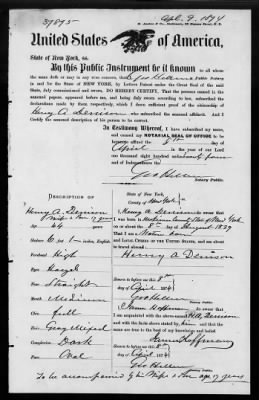 37875
Apl. 9. 1874
United States of America,
State of New York, ss.
By this Public Instrument be it known
to whom the same doth or may in any wise concern, that I, Geo Hillen Public Notary
in and for the State of NEW YORK, by Letters Patent under the Great Seal of the said
State, duly commissioned and sworn, DO HEREBY CERTIFY, That the persons named in the
annexed papers, appeared before me, and being duly sworn according to law, subscribed the
declarations made by them respectively, which I conceive sufficient proof of the citizenship of
Henry A Denison who subscribed the annexed affidavit. And I
Certify the annexed description of his person to be correct.
In Testimony Whereof, I have subscribed my name,
and caused my NOTARIAL SEAL OF OFFICE to be
hereunto affixed the 8th day of
April in the year of our Lord
one thousand eight hundred seventy four
and of Independence the
Geo Hillen
Notary Public.
DESCRIPTION OF
Henry A. Denison
Wife & Son 17 years
Age 44
Stature 6 ft 1 inches, English
Forehead High
Eyes Hazel
Nose Straight
Mouth Medium
Chin Full
Hair Gray Mixed
Complexion Dark
Face Oval
State of New York,
County of New York ss.
I, Henry A. Denison swear that I
was born in
State of New York
on or about the 8th day of August 1829
that I am a Native born
and LOYAL CITIZEN of the UNITED STATES, and am about
to travel abroad.
Henry A Denison
Sworn to before me this 8th
day of April 1874
Geo Hillen
Notary Public.
I, James Hoffman swear that I
am acquainted with the above-named H. A. Denison
and with the facts above stated by him and that the
same are true to the best of my knowledge and belief.
James Hoffman
Sworn to before me this 8th
day of April 1874
Geo Hillen
Notary Public.
To be accompanied by his Wife & Son age 17 years